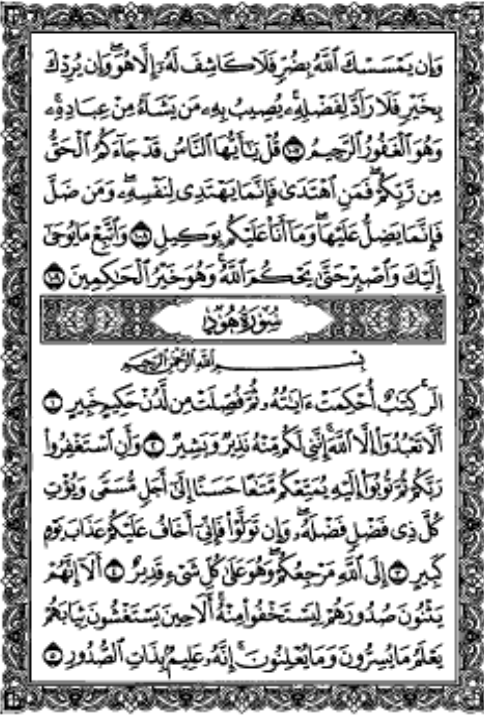 وَإِن يَمْسَسْكَ ٱللَّهُ بِضُرٍّ فَلَا كَاشِفَ لَهُۥٓ إِلَّا هُوَ ۖ وَإِن يُرِدْكَ
بِخَيْرٍ فَلَا رَآدَّ لِفَضْلِهِۦ ۚ يُصِيبُ بِهِۦ مَن يَشَآءُ مِنْ عِبَادِهِۦ ۚ
وَهُوَ ٱلْغَفُورُ ٱلرَّحِيمُ ١٠٧ قُلْ يَـٰٓأَيُّهَا ٱلنَّاسُ قَدْ جَآءَكُمُ ٱلْحَقُّ
مِن رَّبِّكُمْ ۖ فَمَنِ ٱهْتَدَىٰ فَإِنَّمَا يَهْتَدِى لِنَفْسِهِۦ ۖ وَمَن ضَلَّ
فَإِنَّمَا يَضِلُّ عَلَيْهَا ۖ وَمَآ أَنَا۠ عَلَيْكُم بِوَكِيلٍ ١٠٨ وَٱتَّبِعْ مَا يُوحَىٰٓ
إِلَيْكَ وَٱصْبِرْ حَتَّىٰ يَحْكُمَ ٱللَّهُ ۚ وَهُوَ خَيْرُ ٱلْحَـٰكِمِينَ ١٠٩
سُورَةُ هُودٍ
بِسْمِ ٱللَّهِ ٱلرَّحْمَـٰنِ ٱلرَّحِيمِ
الٓر ۚ كِتَـٰبٌ أُحْكِمَتْ ءَايَـٰتُهُۥ ثُمَّ فُصِّلَتْ مِن لَّدُنْ حَكِيمٍ خَبِيرٍ ١
أَلَّا تَعْبُدُوٓا۟ إِلَّا ٱللَّهَ ۚ إِنَّنِى لَكُم مِّنْهُ نَذِيرٌ وَبَشِيرٌ ٢ وَأَنِ ٱسْتَغْفِرُوا۟
رَبَّكُمْ ثُمَّ تُوبُوٓا۟ إِلَيْهِ يُمَتِّعْكُم مَّتَـٰعًا حَسَنًا إِلَىٰٓ أَجَلٍ مُّسَمًّى وَيُؤْتِ
كُلَّ ذِى فَضْلٍ فَضْلَهُۥ ۖ وَإِن تَوَلَّوْا۟ فَإِنِّىٓ أَخَافُ عَلَيْكُمْ عَذَابَ يَوْمٍ
كَبِيرٍ ٣ إِلَى ٱللَّهِ مَرْجِعُكُمْ ۖ وَهُوَ عَلَىٰ كُلِّ شَىْءٍ قَدِيرٌ ٤ أَلَآ إِنَّهُمْ
يَثْنُونَ صُدُورَهُمْ لِيَسْتَخْفُوا۟ مِنْهُ ۚ أَلَا حِينَ يَسْتَغْشُونَ ثِيَابَهُمْ
يَعْلَمُ مَا يُسِرُّونَ وَمَا يُعْلِنُونَ ۚ إِنَّهُۥ عَلِيمٌۢ بِذَاتِ ٱلصُّدُورِ ٥